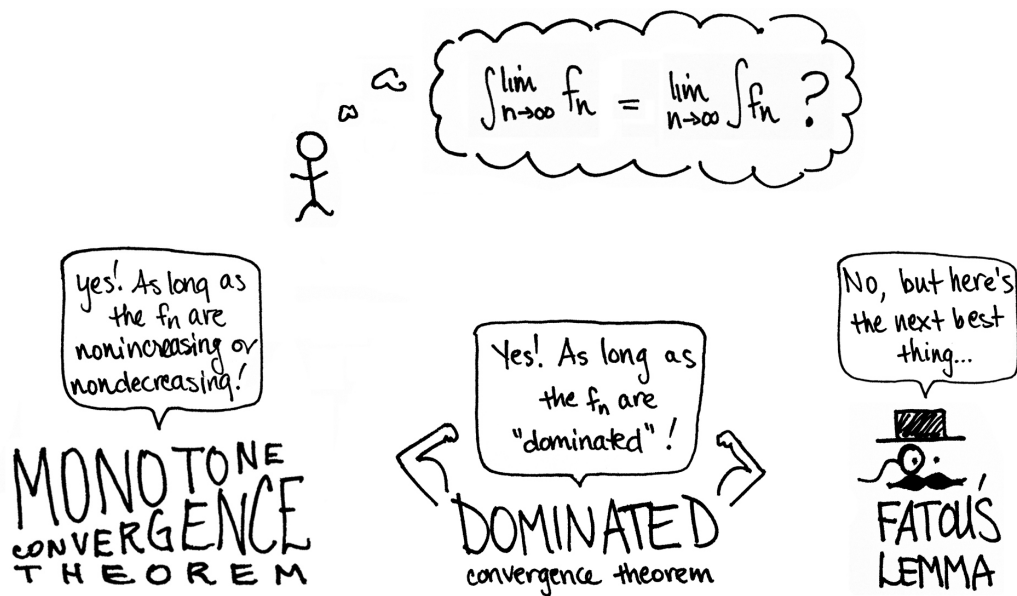 ∫ lim n→∞ fn = lim n→∞ ∫ fn ?
yes! As long as
the fn are
nonincreasing or
nondecreasing!
MONOTONE
CONVERGENCE
THEOREM
Yes! As long as
the fn are
"dominated"!
DOMINATED
convergence theorem
No, but here's
the next best
thing...
FATOU'S
LEMMA